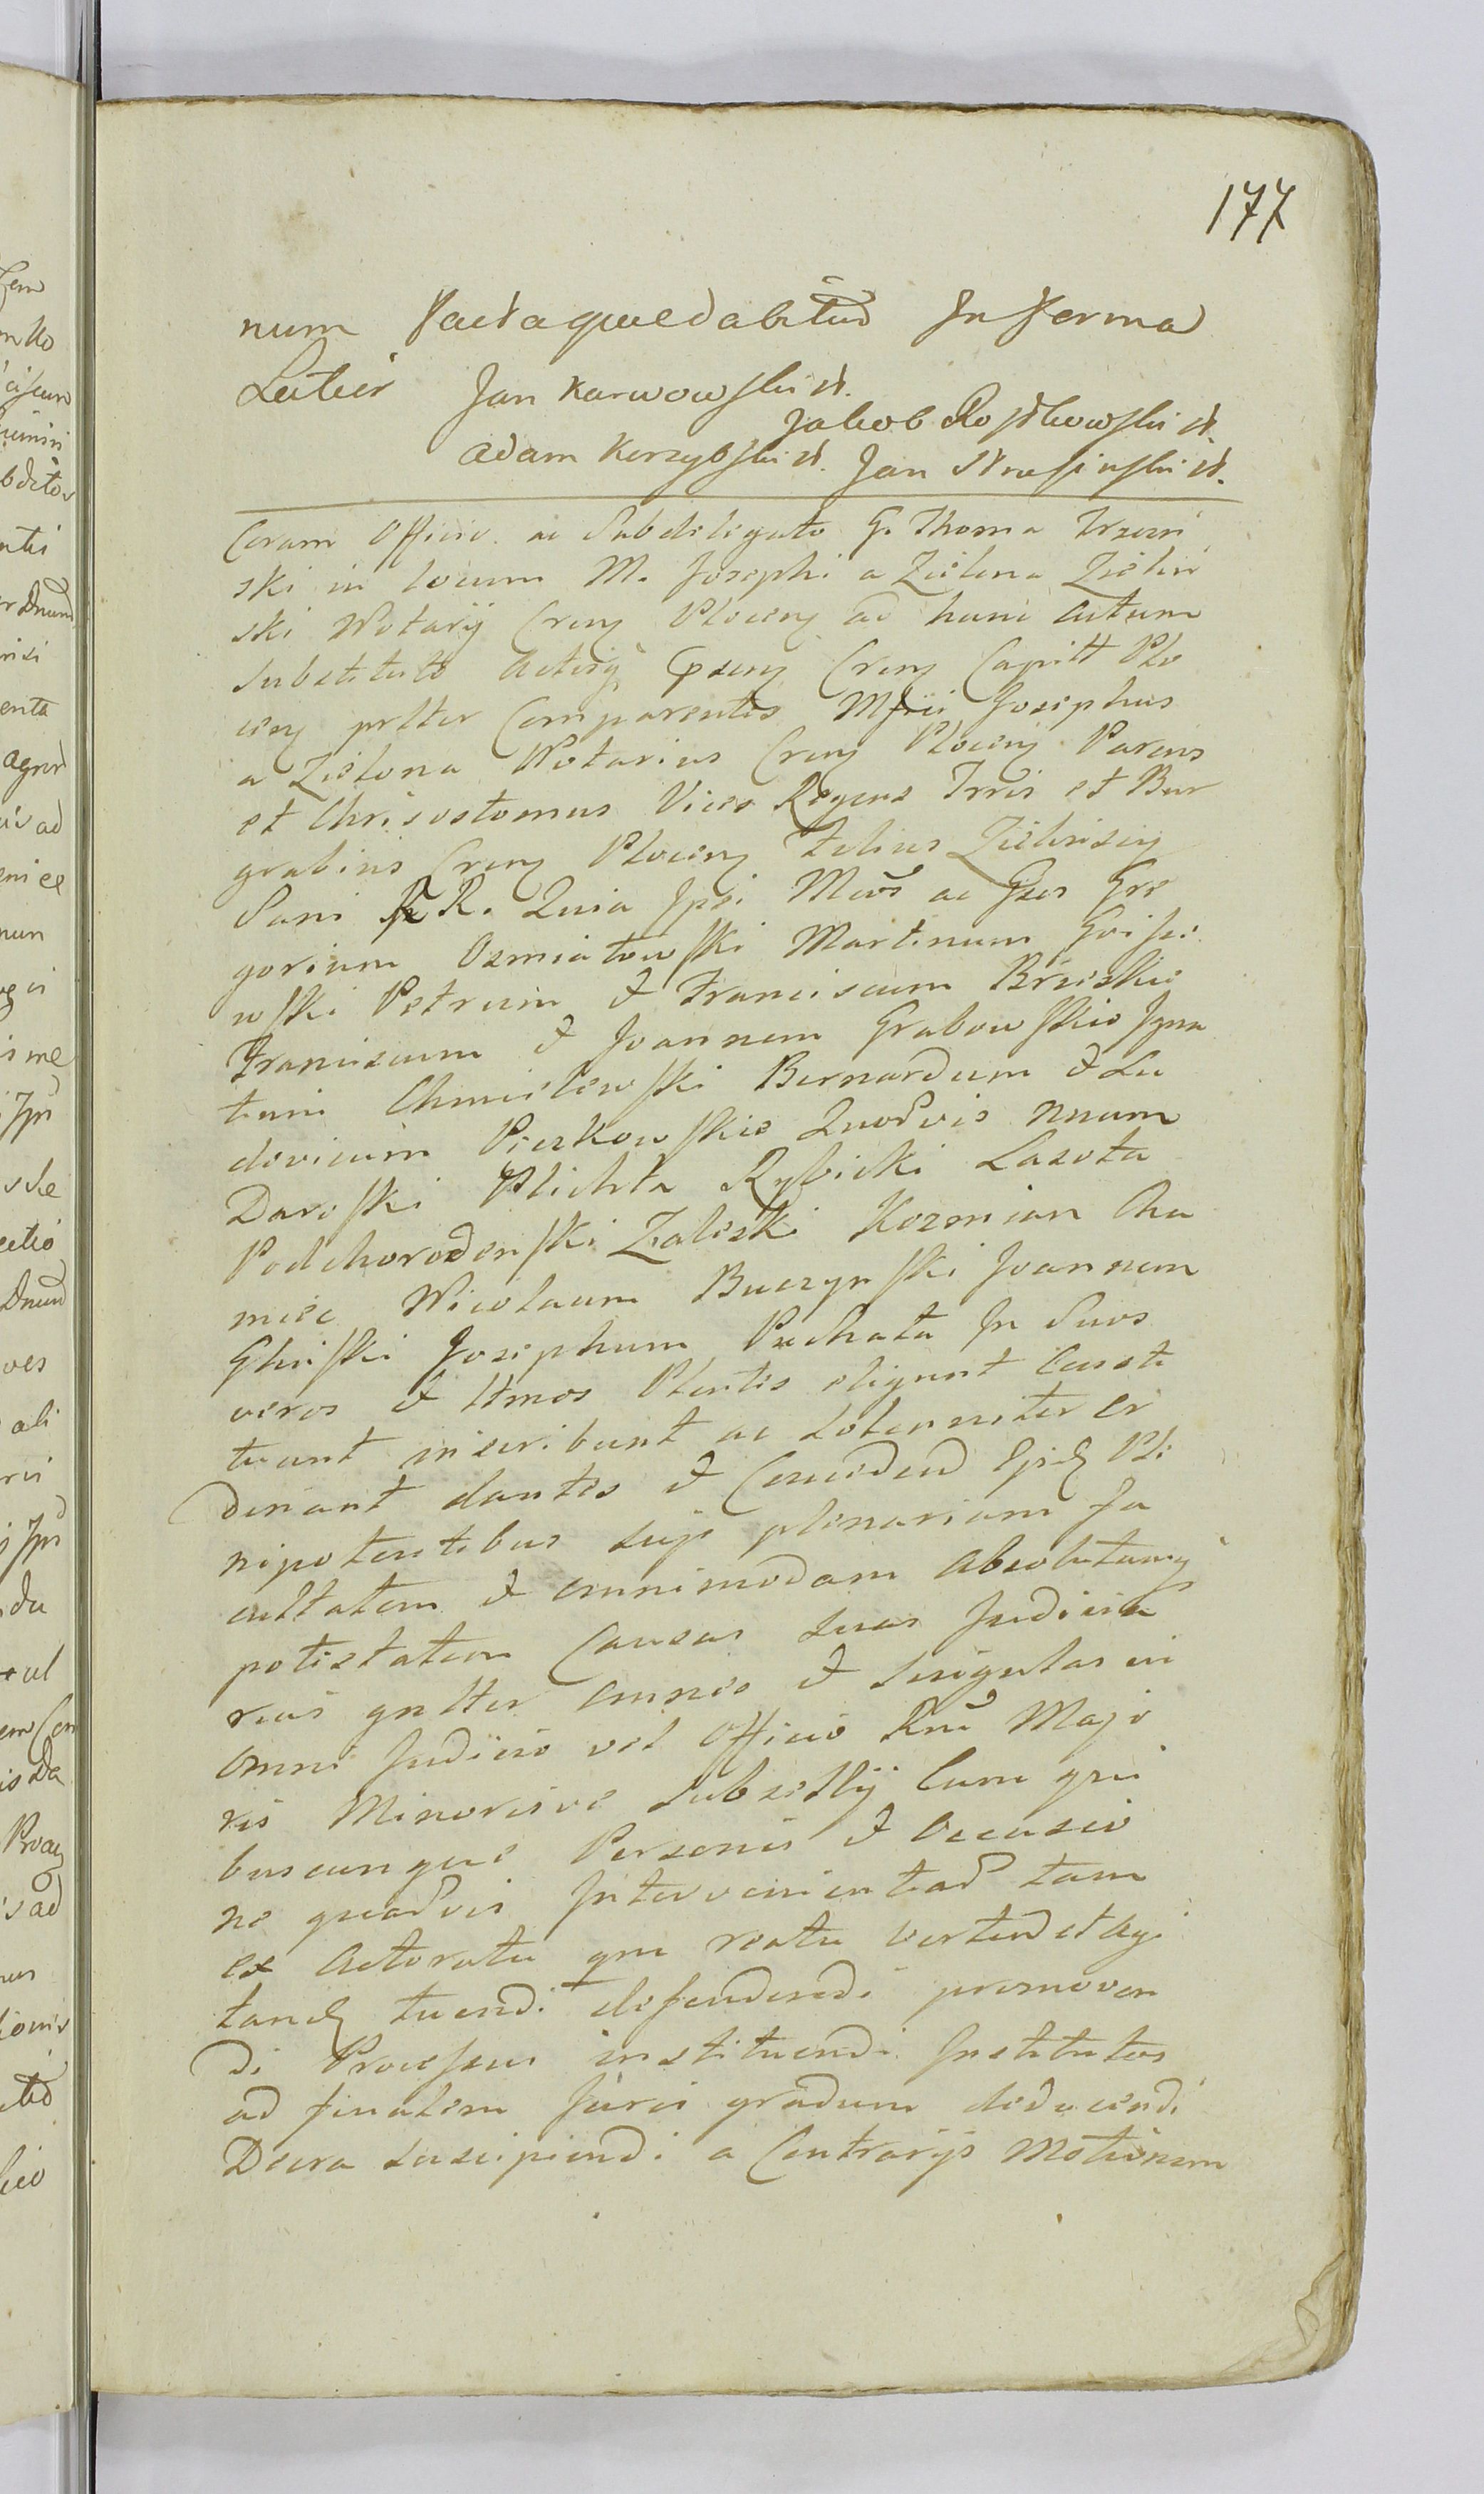 177
num factaquedabitud In forma
Latior Jan Karwowski st.
Jakob Rostkowski st.
Adam Korzybski st. Jan Strusinski st.
Coram Officio ac Subdelegato G. Thoma Trzcin
ski in locum M. Josephi a Zielona Zielin
ski Notarÿ Creng Ploceng ad hunc actum
Substituto Actisq Cpseng Creng Capitt Plo
ceng prtter Comparentes Mfici Josephus
a Zielona Notarius Creng Ploceng Parens
et Chrisostomus Vices Regens Trris et Bur
grabius Creng Ploceng Filius Zielinscy
Sani R. Quia Ipsi Mcos ac Gsos Gre
gorium Ozmiatowski Martinum Goisie
wski Petrum & Franciscum Brzeskie
Franciscum & Joannem Grabowskie Igna
tium Chmielewski Bernardum & Lu
dovicum Pieczkowskie Quodvis unum
Darowski Plichta Rybicki Lasota
Podchorodenski Zaleski Kozmian Cha
miec Nicolaum Buczynski Joannem
Gliński Josephum Puchata In Suos
veros & Ltmos Plentes eligunt Consti
tuunt inscribunt ac Solenniter or
dinant dantes & Concedend Ipsis Ple
nipotentibus suis plenariam fa
cultatem & omnimodam absolutamq
potestatem Causas suas Judicia
rias gnlter omnes & singulas in
omni Judicio vel Officio Rni Majo
ris Minorisve Subsellÿ Cum qui
buscunque Personis & Occasio
ne quadvis Intervenientiad tam
ex Actoratu qm reatu vertend et agi
tand tuendi defendendi promoven
di Processus instituendi Institutos
ad finalem Juris gradum deducendi
Decra suscipiendi a Contrarijs Motionem